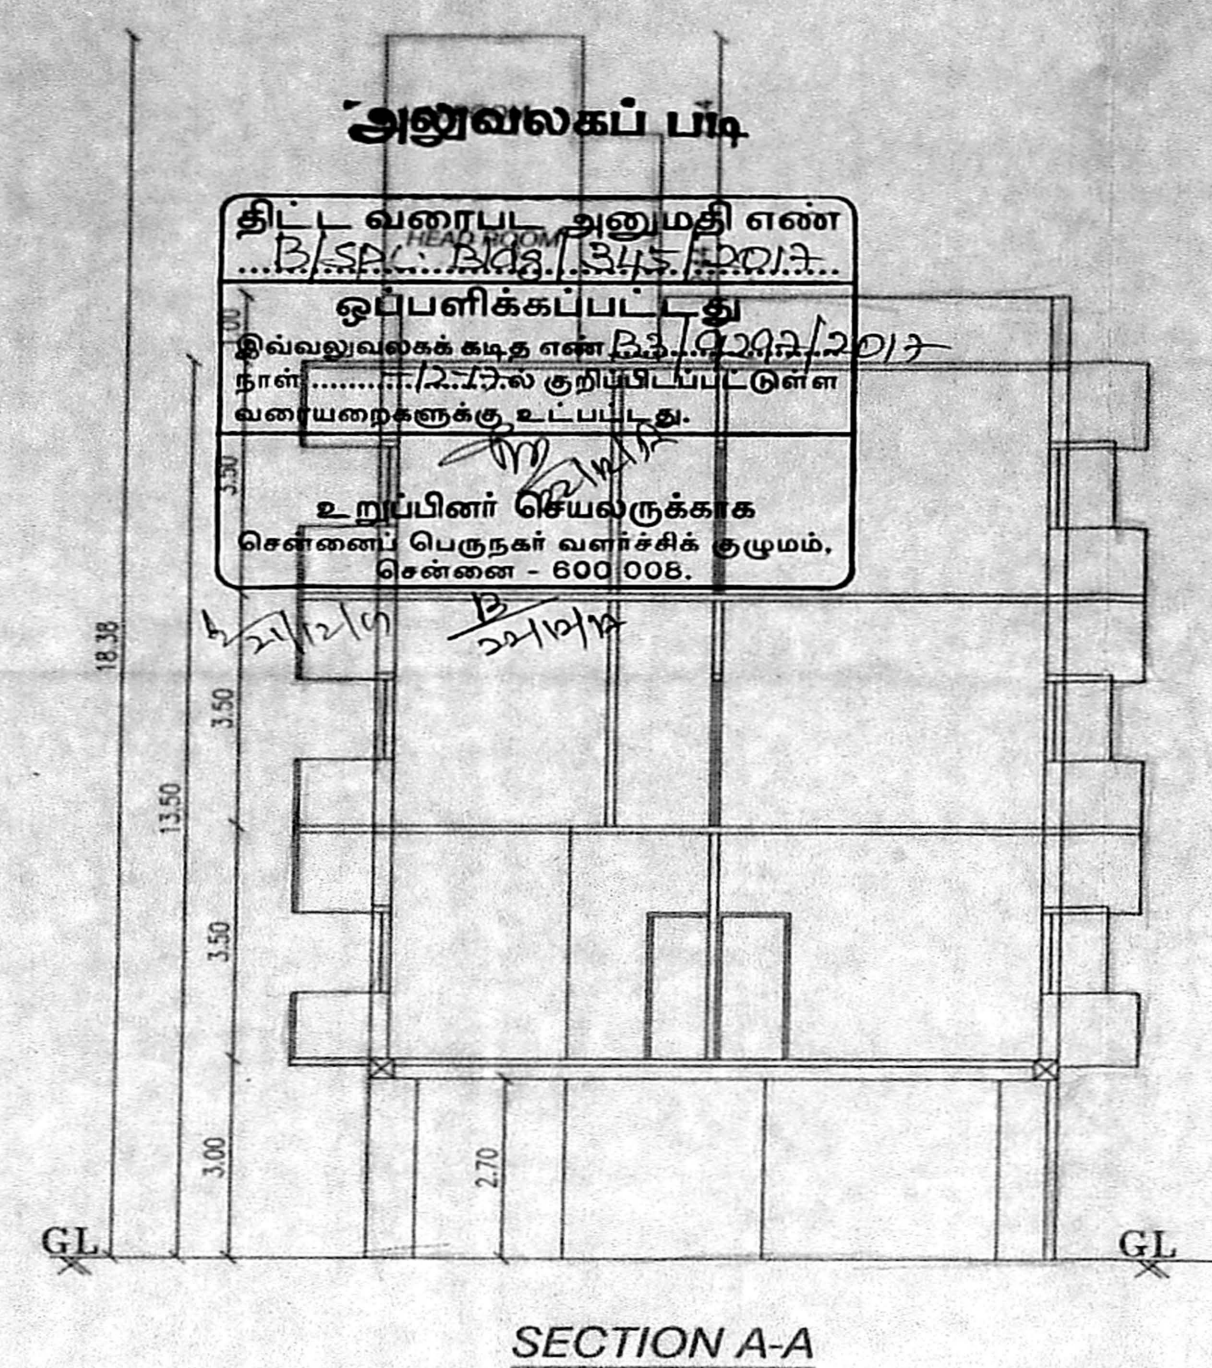 அலுவலகப் படி
திட்ட வரைபட அனுமதி எண்
HEAD ROOM
B/SPl. Bldg/345/2017
ஒப்பளிக்கப்பட்டது
இவ்வலுவலகக் கடித எண் B3/9297/2017
நாள் -12-17ல் குறிப்பிடப்பட்டுள்ள
வரையறைகளுக்கு உட்பட்டது.
22/12/17
உறுப்பினர் செயலருக்காக
சென்னைப் பெருநகர் வளர்ச்சிக் குழுமம்,
சென்னை - 600 008.
22/12/17
3.50
18.38
3.50
13.50
3.50
3.00
2.70
GL
GL
SECTION A-A